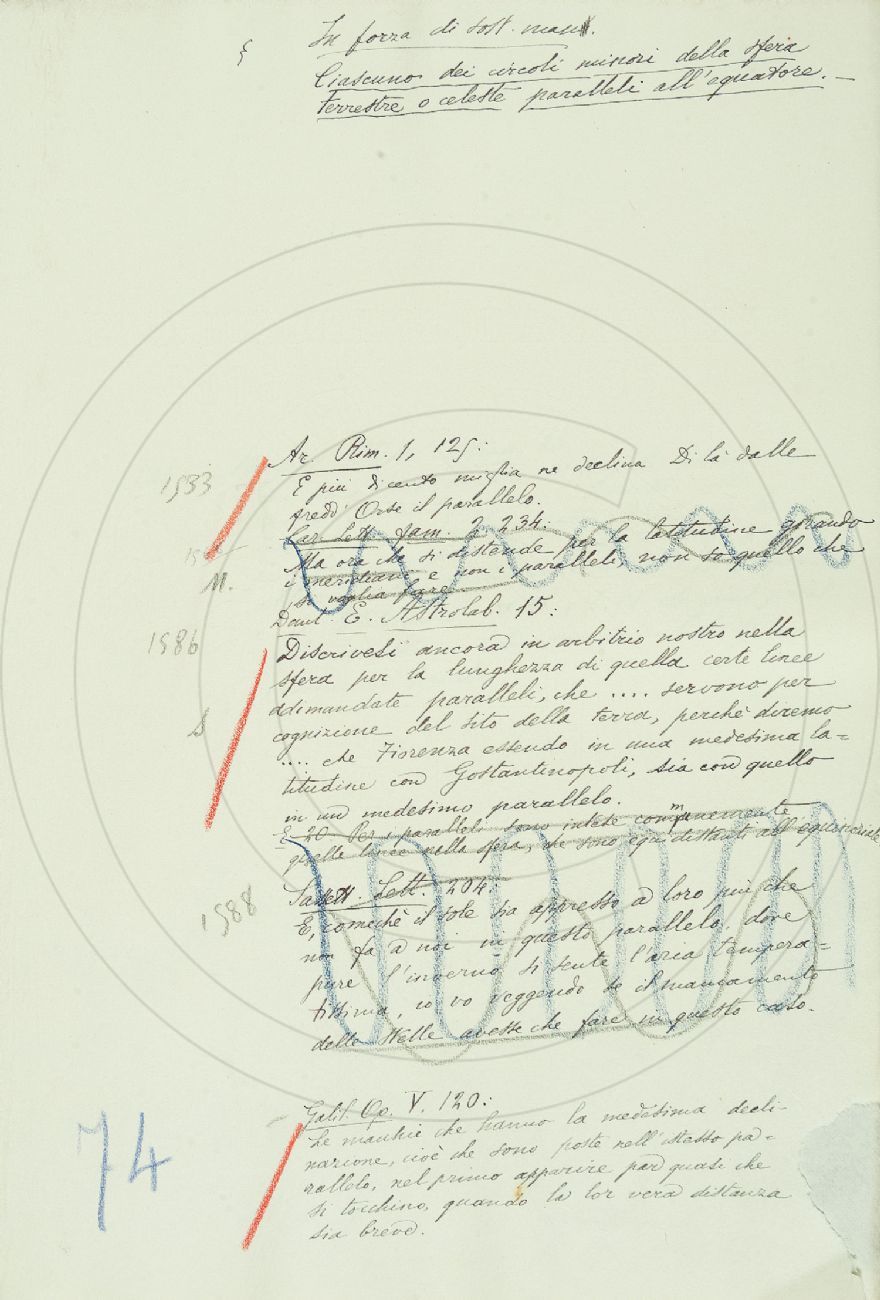 § In forza di sost. masc.
Ciascuno dei circoli minori della sfera
terrestre o celeste paralleli all'equatore. —
Ar. Rim. 1, 125:
1533
E più di cento miglia ne declina Di là dalle
fredd' Orse il parallelo.
Car. Lett. fam. 2, 234:
Ma ora che si distende per la latitudine girando
i meridiani e non i paralleli, non so quello che
si voglia fare.
M.
Dant. E. Astrolab. 15:
1586
Discrivesi ancora in arbitrio nostro nella
sfera per la lunghezza di quella certe linee
addimandate paralleli, che .... servono per
cognizione del sito della terra, perchè diremo
S
.... che Fiorenza essendo in una medesima la=
titudine con Gostantinopoli, sia con quello
in un medesimo parallelo.
E 20 Per i paralleli sono intese communemente
quelle linee nella sfera, che sono equidistanti all'equinoziale
Sassett. Lett. 204:
1588
E, comechè il sole ha appresso a loro più che
non fa a noi in questo parallelo, dove
pure l'inverno si sente l'aria tempera=
tissima, io vo veggendo se il mancamento
delle stelle avesse che fare in questo caso.
Galil. Op. V. 120:
Le macchie che hanno la medesima decli-
nazione, cioè che sono poste nell'istesso pa=
rallelo, nel primo apparire par quasi che
si tocchino, quando la lor vera distanza
sia breve.
74